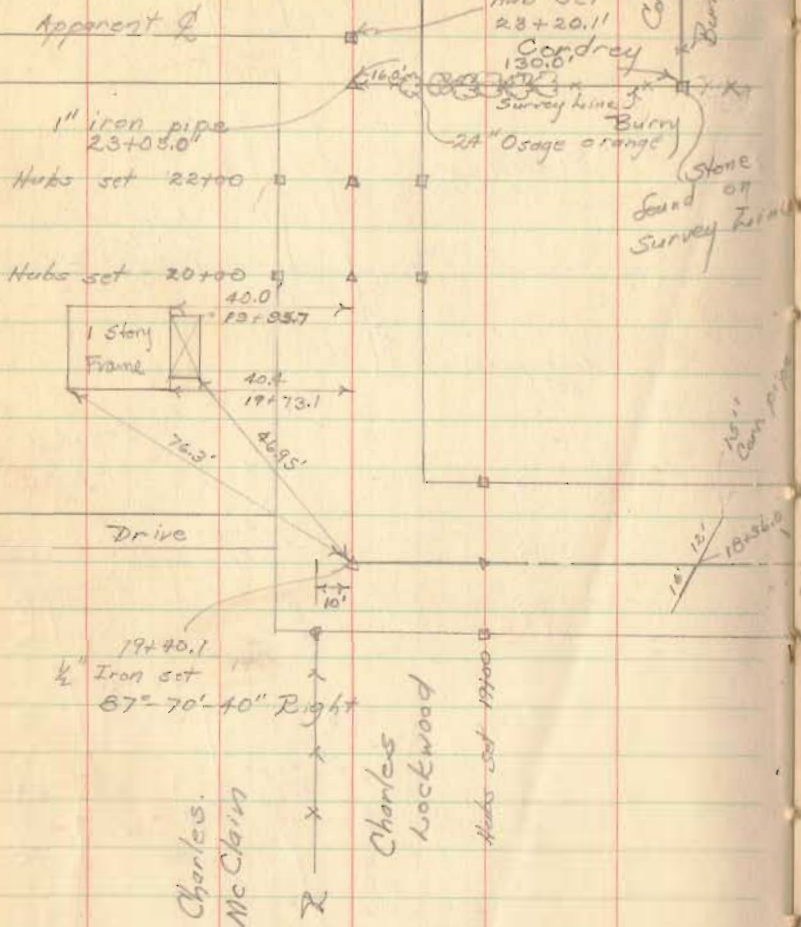 Apparent ℄
Hub Set
23+20.1'
Cordrey
130.0'
16.0'
Survey Line
Burry
1" iron pipe
23+03.0"
24" Osage orange
Stone
found on
Survey Line
Hubs set 22+00
Hubs set 20+00
40.0'
19+93.7
1 Story
Frame
40.4
19+73.1
76.3'
46.95'
15"
Corr pipe
Drive
12'
18+36.0
10'
19+40.1
½" Iron set
87°-70'-40" Right
Charles.
McClain
Charles
Lockwood
Hubs set 19+00